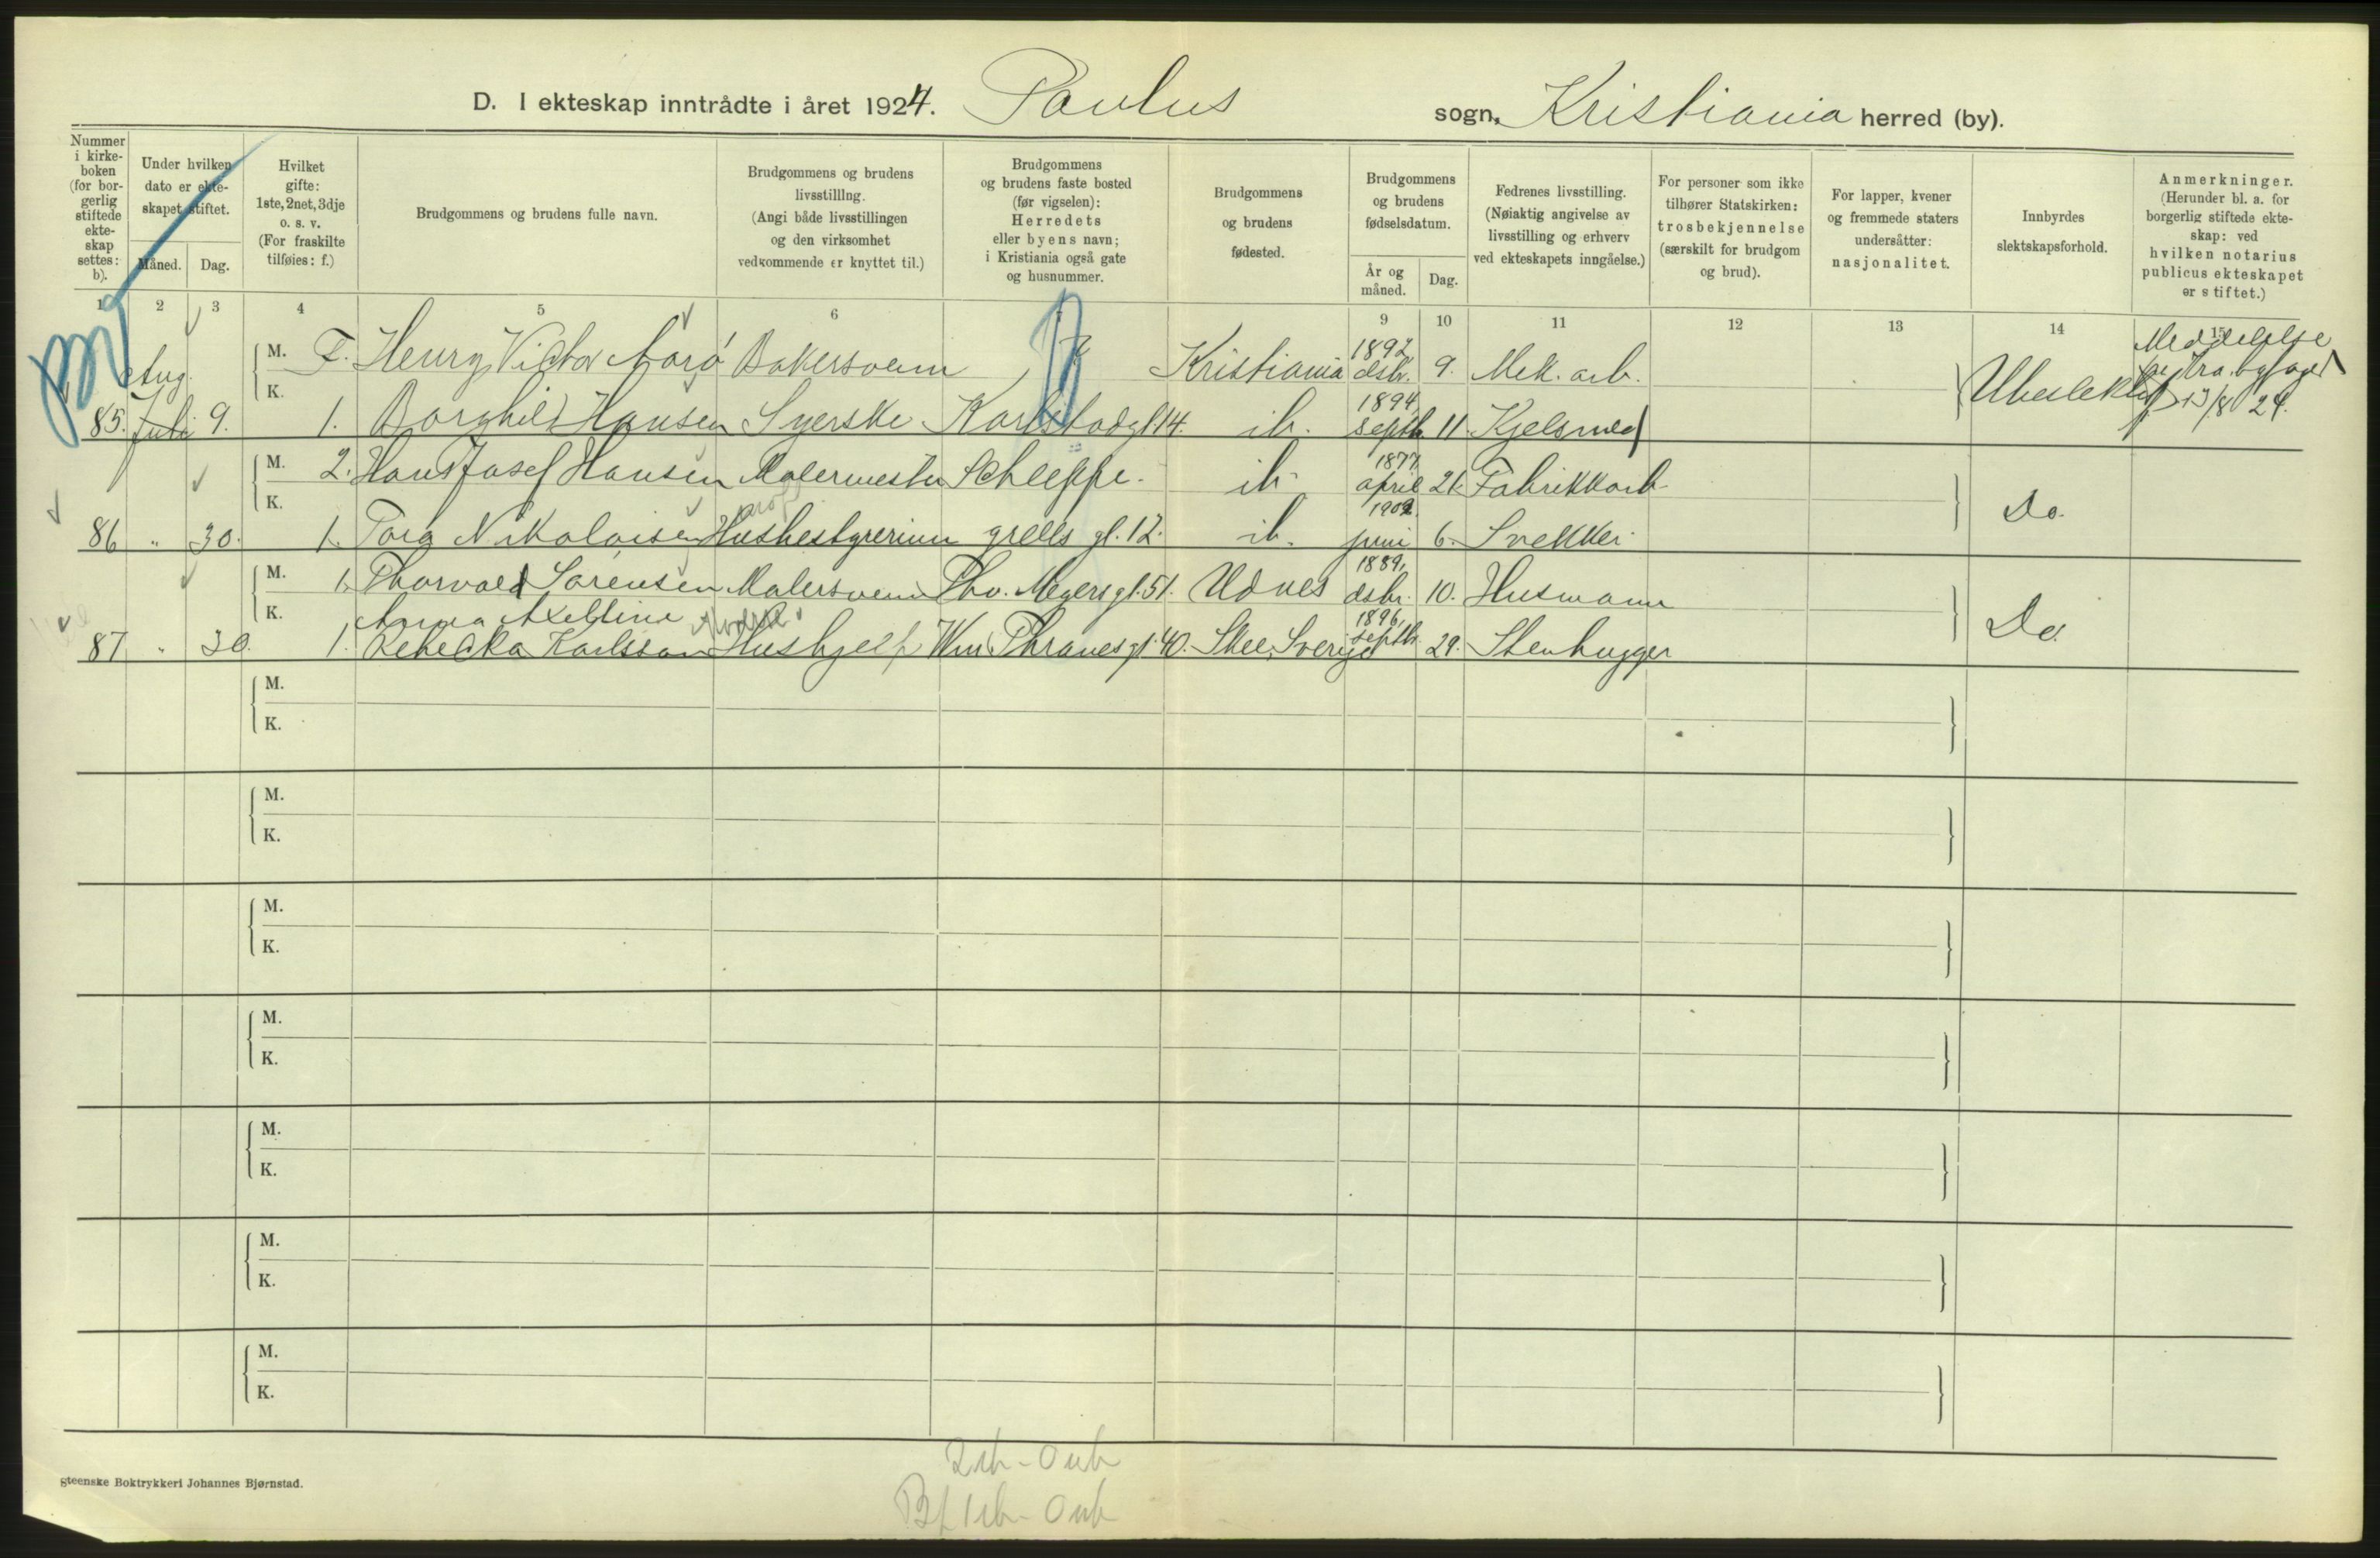 D. I ekteskap inntrådte i året 1924. Paulus sogn, Kristiania herred (by).
Nummer i kirkeboken (for borgerlig stiftede ekteskap settes: b).
Under hvilken dato er ekteskapet stiftet.
Måned. Dag.
Hvilket gifte: 1ste, 2net, 3dje o. s. v. (For fraskilte tilføies: f.)
Brudgommens og brudens fulle navn.
Brudgommens og brudens livsstilling. (Angi både livsstillingen og den virksomhet vedkommende er knyttet til.)
Brudgommens og brudens faste bosted (før vigselen): Herredets eller byens navn; i Kristiania også gate og husnummer.
Brudgommens og brudens fødested.
Brudgommens og brudens fødselsdatum.
År og måned. Dag.
Fedrenes livsstilling. (Nøiaktig angivelse av livsstilling og erhverv ved ekteskapets inngåelse.)
For personer som ikke tilhører Statskirken: trosbekjennelse (særskilt for brudgom og brud).
For lapper, kvener og fremmede staters undersåtter: nasjonalitet.
Innbyrdes slektskapsforhold.
Anmerkninger. (Herunder bl. a. for borgerlig stiftede ekteskap: ved hvilken notarius publicus ekteskapet er stiftet.)
1 2 3 4 5 6 7 8 9 10 11 12 13 14 15
M. F. Henry Victor Marø Bakersvenn Kristiania 1892 dsbr. 9. Mek. arb.
K.
85. Aug. Juli 9. 1. Borghild Hansen Syerske Karlstadgt 14. ib. 1894, septb. 11. Kjelsmed
Ubeslektet Meddelelse fra byfoged 13/8 24.
M. 2. Hans Josef Hansen Malermester Schleppe- ib- 1877, april 21. Fabrikkarb.
K.
86 " 30. 1. Tora Nikolaisen Husbestyrerinne grells gt. 12. ib. 1902. juni 6. Snekker
Do.
M. 1. Thorvald Sørensen Malersvenn Thv. Meyersgt. 51. Udnes 1889, dsbr. 10. Husmann
K. Anna Axeltine
87 " 30. 1. Rebecka Karlsson Hushjelp Wm. Thranesgt. 40. Skee, Sverige 1896, septb. 29. Stenhugger
Do.
M.
K.
M.
K.
M.
K.
M.
K.
M.
K.
M.
K.
M.
K.
gteenske Boktrykkeri Johannes Bjørnstad.
2 ib - 0 ub
Bf 1 ib - 0 ub